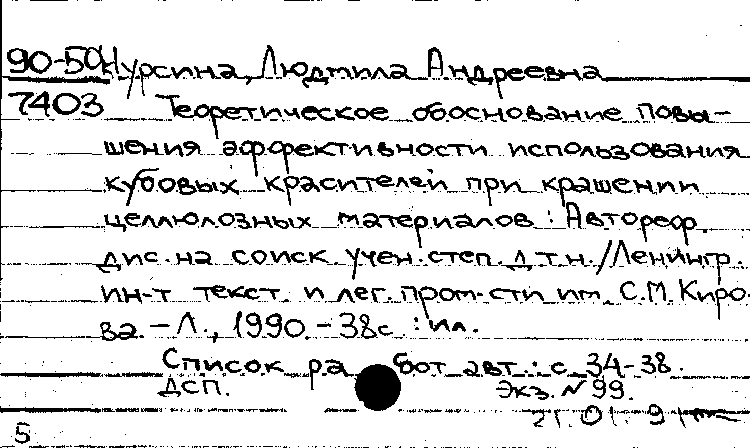 90-50 Нурсина, Людмила Андреевна
7403 Теоретическое обоснование повы-
шения эффективности использования
кубовых красителей при крашении
целлюлозных материалов : Автореф.
дис. на соиск. учен. степ. д.т.н. / Ленингр.
ин-т текст. и лег. пром-сти им. С.М. Киро
ва. – Л., 1990. – 38с. : ил.
Список работ авт.: с. 34-38.
ДСП. Экз. №99.
21.01.91
5